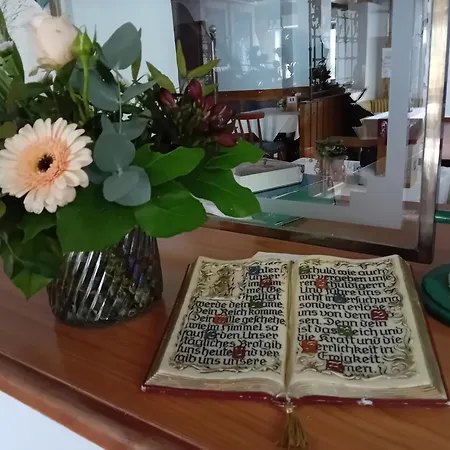 Vater
Unser
Geheiligt
werde dein Name
Dein Reich komme
Dein Wille geschehe
wie im Himmel so
auf Erden Unser
tägliches Brot gib
uns heute
uns unsere
Schuld wie auch
wir vergeben
Schuldigern
uns nicht in Versuchung
sondern erlöse
uns von dem
Bösen. Denn dein
ist das Reich und
die Kraft und die
Herrlichkeit in
Ewigkeit
Amen.